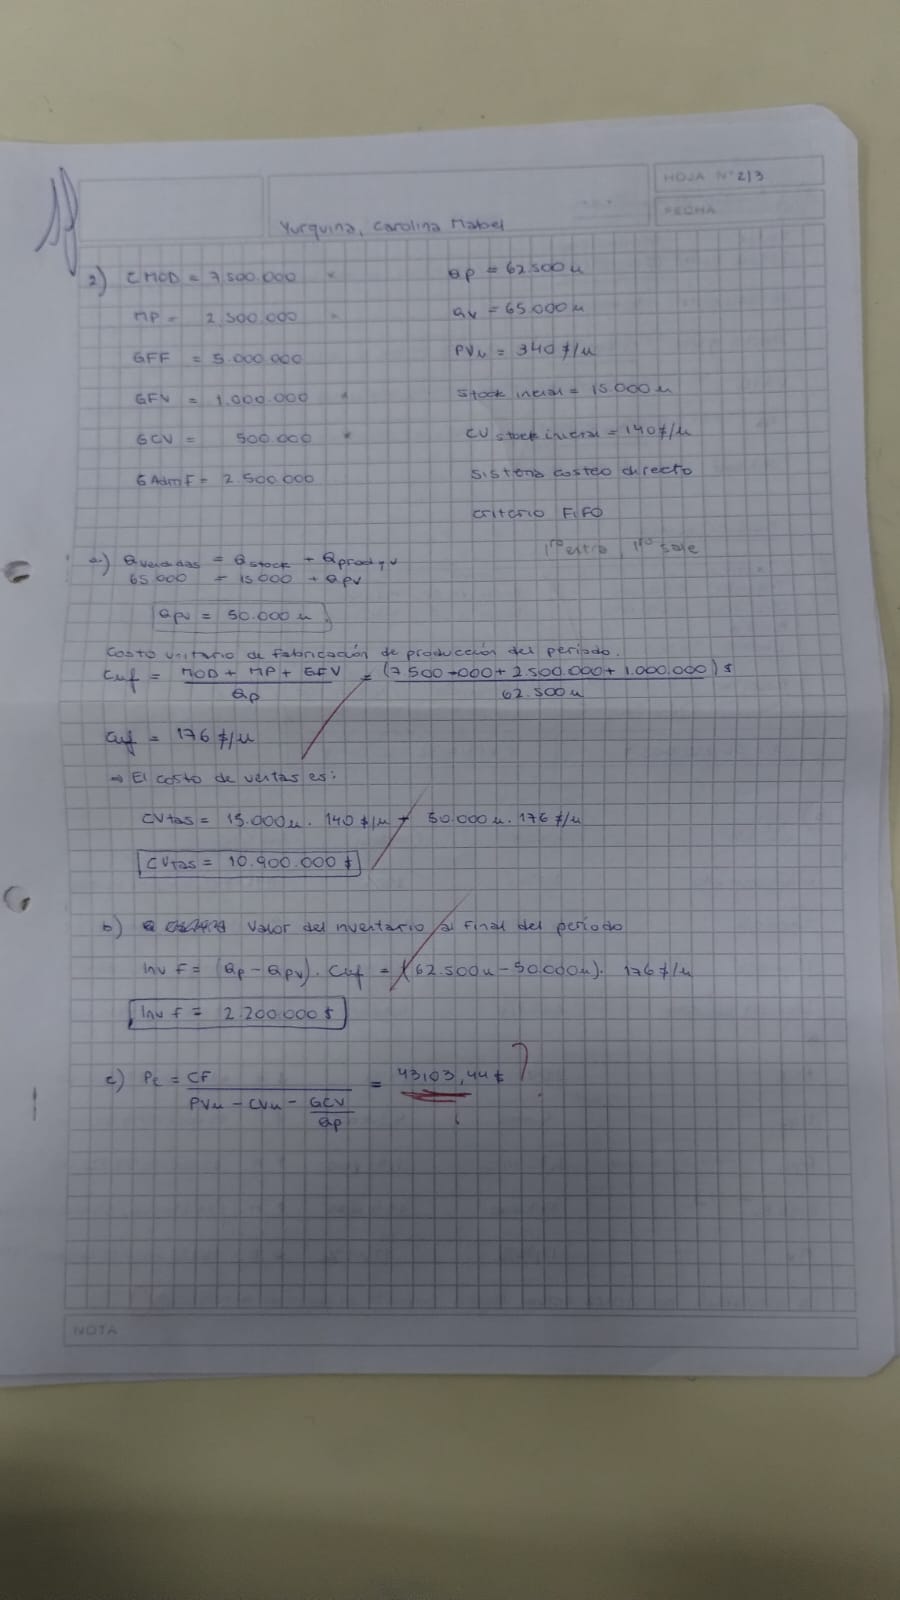 HOJA N° 2/3
FECHA
Yurquina, Carolina Mabel
2) CMOD = 7.500.000
MP = 2.500.000
GFF = 5.000.000
GFV = 1.000.000
GCV = 500.000
GAdmF = 2.500.000
Qp = 62.500u
Qv = 65.000u
PVu = 340 $/u
Stock inicial = 15.000u
CU stock inicial = 140$/u
Sistema costeo directo
Criterio FIFO
1ro entra, 1ro sale
a.) Qvendidas = Qstock + Qprod y v
65.000 = 15.000 + Qpv
Qpv = 50.000 u
Costo unitario de fabricación de producción del período.
Cuf = MOD + MP + GFV / Qp = (7.500.000 + 2.500.000 + 1.000.000) $ / 62.500u
Cuf = 176 $/u
→ El costo de ventas es:
CVtas = 15.000u. 140 $/u + 50.000u. 176 $/u
CVtas = 10.900.000 $
b) Valor del inventario al final del período
Inv f = (Qp - Qpv). Cuf = (62.500u - 50.000u). 176 $/u
Inv f = 2.200.000 $
c) Pe = CF / PVu - CVu - GCV/Qp = 43103,44 $ ?
NOTA